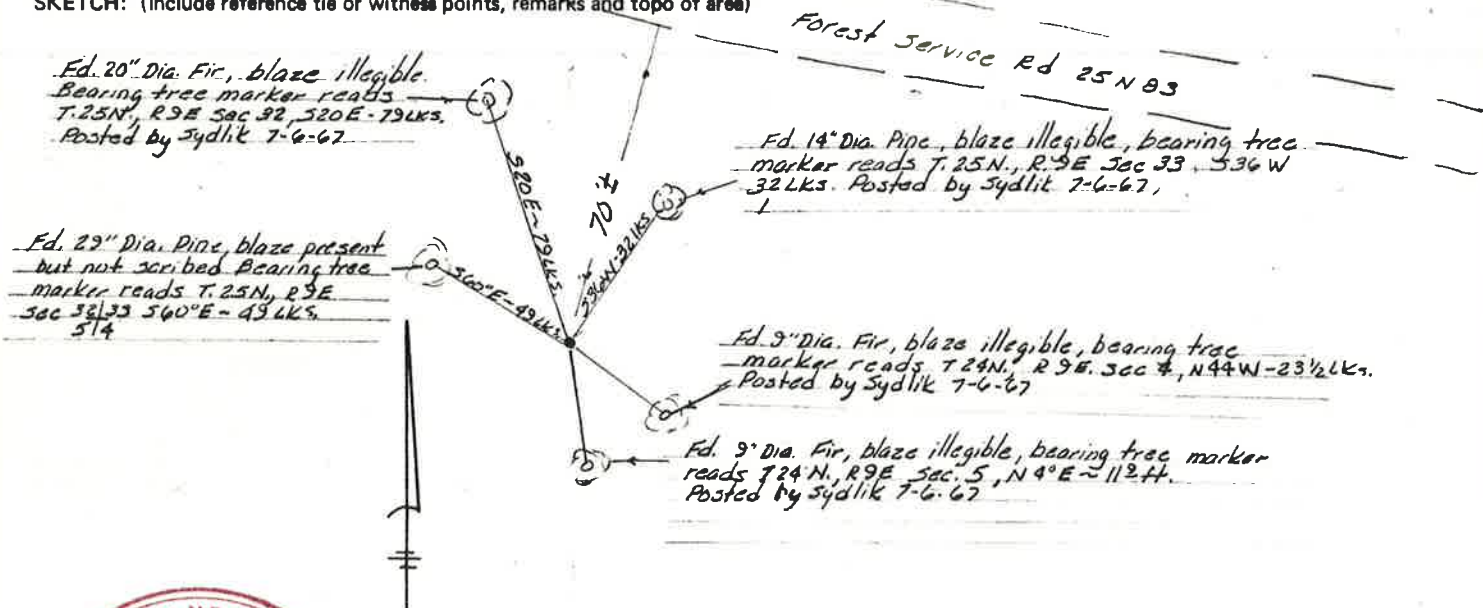 SKETCH: (Include reference tie or witness points, remarks and topo of area)
Forest Service Rd 25 N 83
Fd. 20" Dia. Fir, blaze illegible.
Bearing tree marker reads
T.25N., R9E Sec 32, S20E-79LKS.
Posted by Sydlik 7-6-67
Fd. 14" Dia. Pine, blaze illegible, bearing tree
marker reads T. 25N., R.9E Sec 33, S36W
32 LKS. Posted by Sydlik 7-6-67,
S20E~79LKS.
70'±
S36W-32LKS
Fd. 29" Dia. Pine, blaze present
but not scribed Bearing tree
marker reads T. 25N., R9E
Sec 32|33 S60°E-49 LKS.
5|4
S60°E-49LKS.
Fd 9" Dia. Fir, blaze illegible, bearing tree
marker reads T24N., R9E. Sec 4, N44W-23½LKs.
Posted by Sydlik 7-6-67
Fd. 9" Dia. Fir, blaze illegible, bearing tree marker
reads T24N., R9E Sec. 5, N4°E~11² ft.
Posted by Sydlik 7-6-67